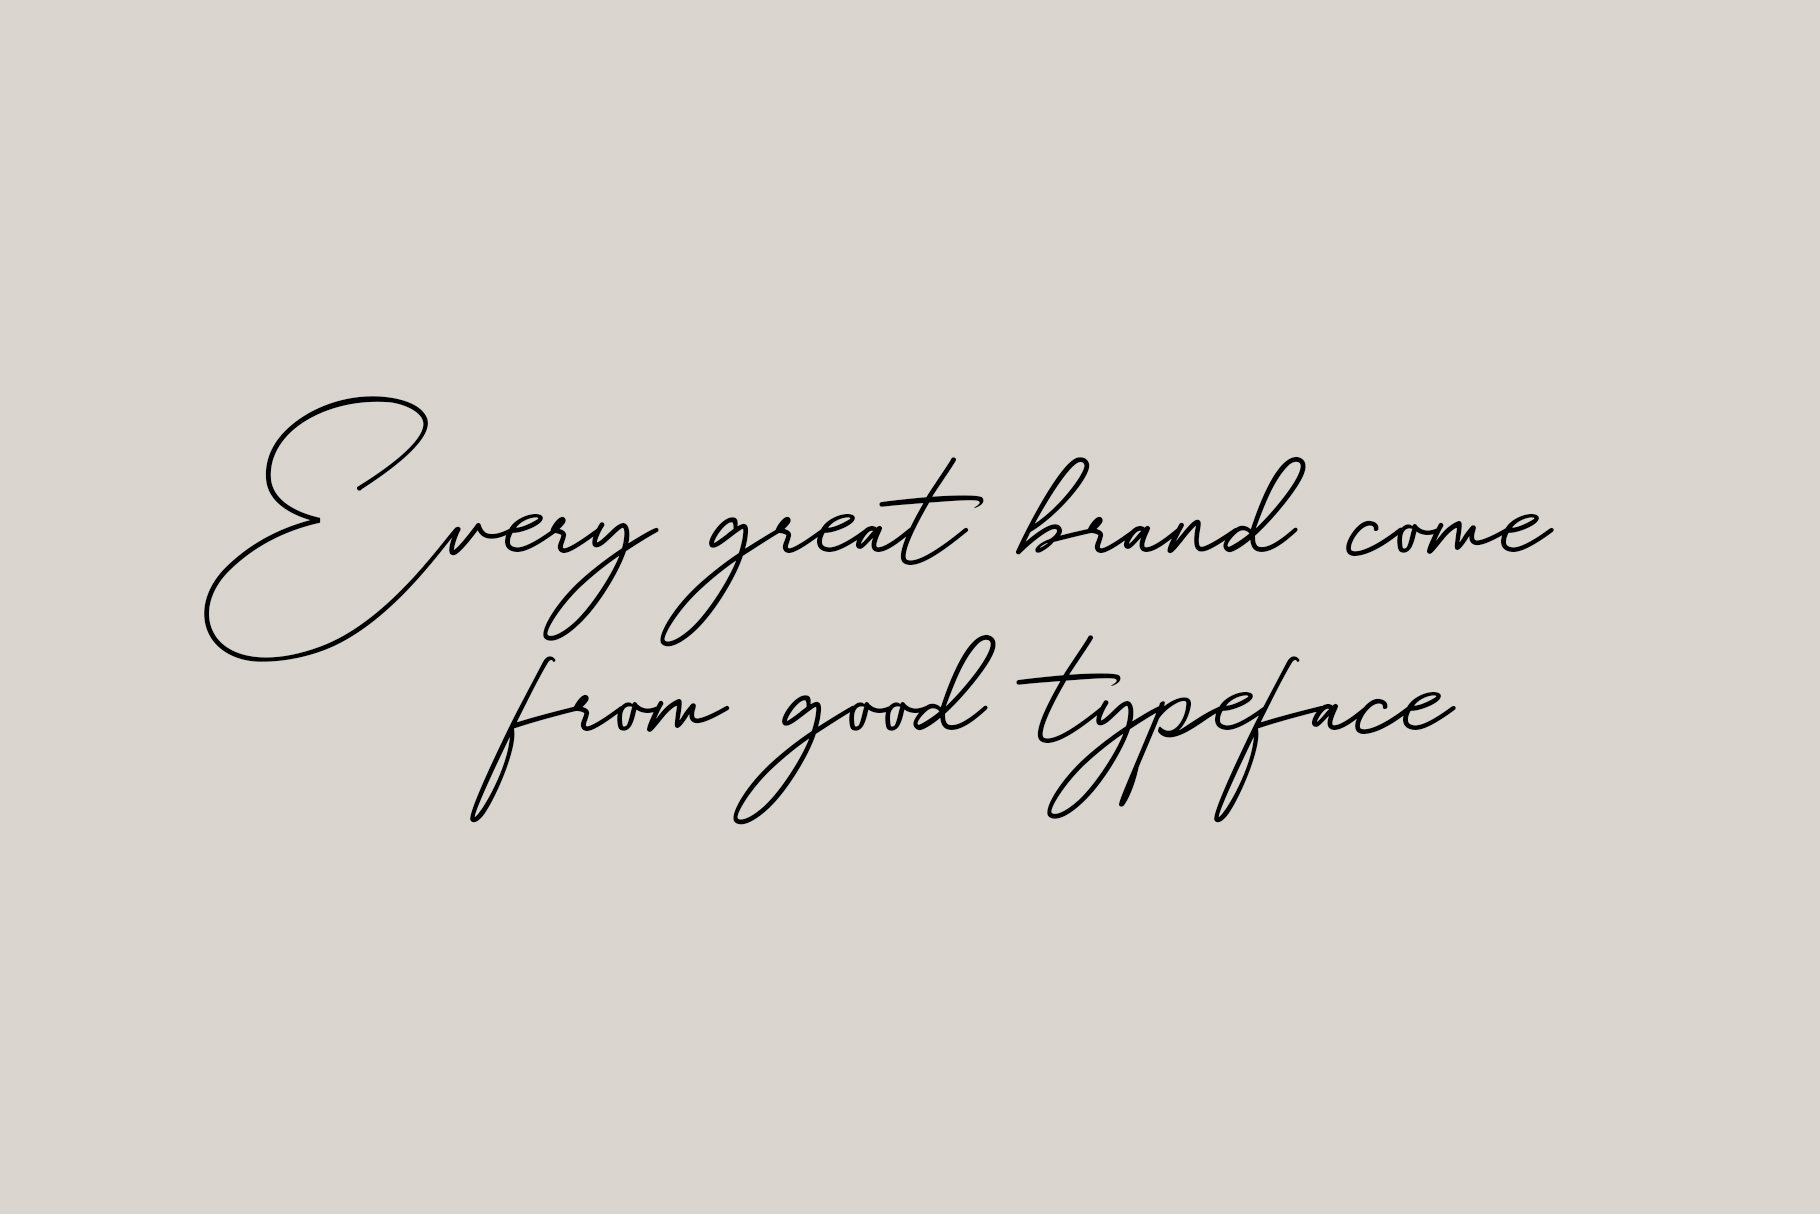 Every great brand come
from good typeface